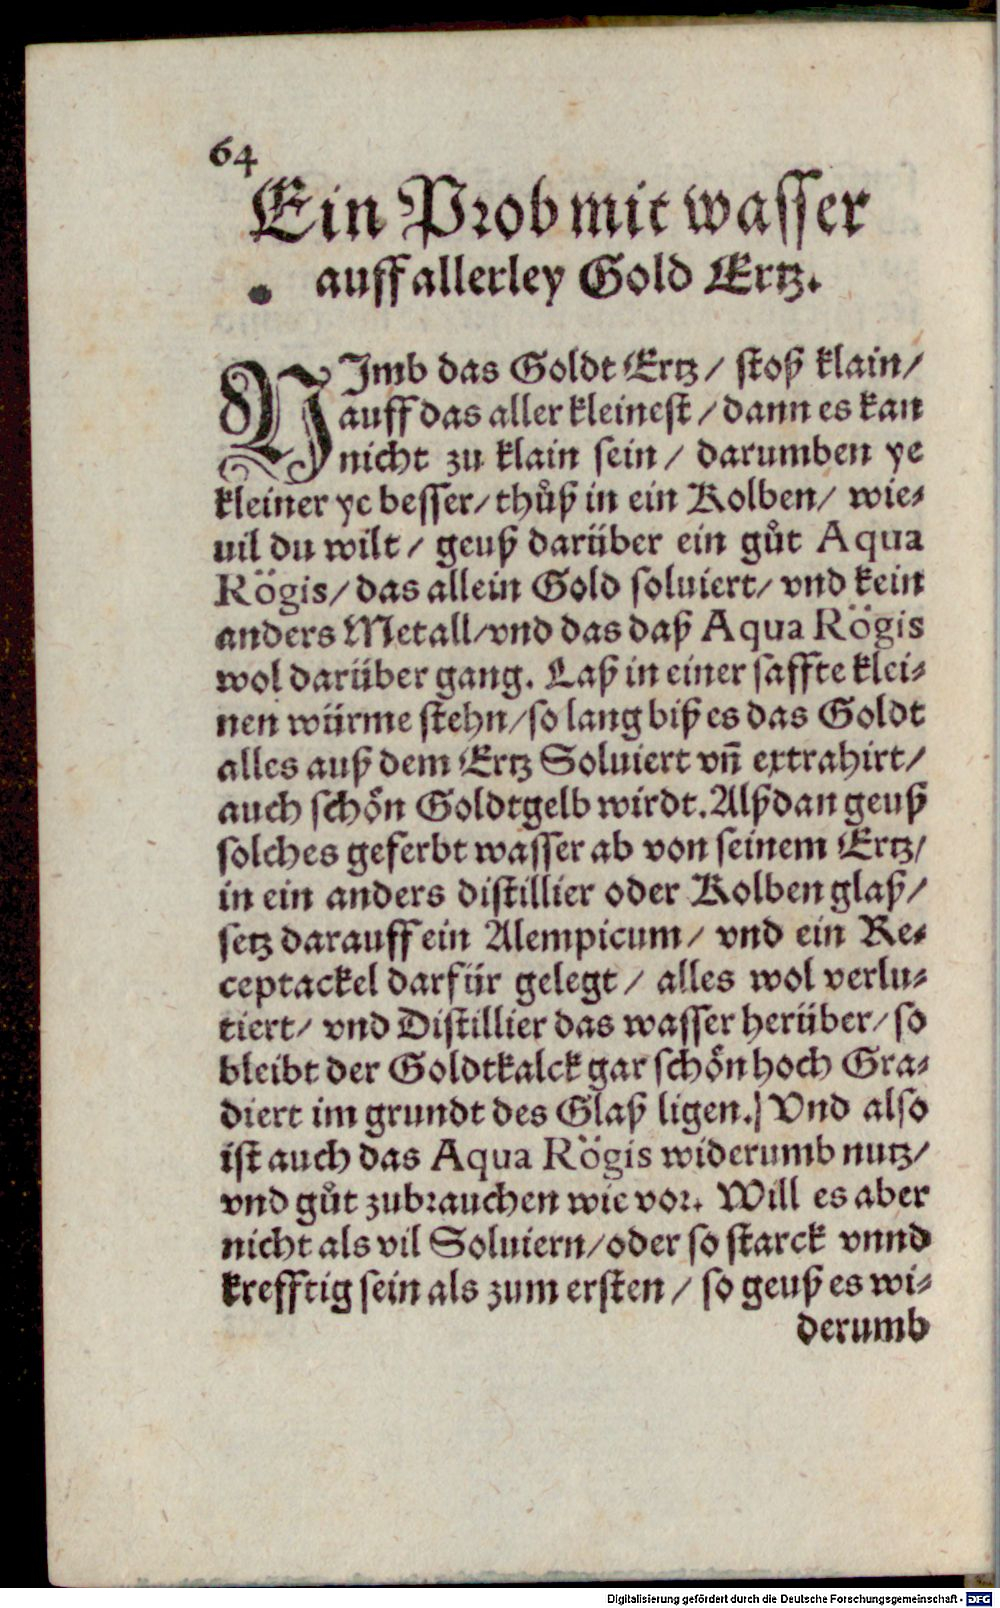 64
Ein Prob mit wasser
auff allerley Gold Ertz.
NImb das Goldt Ertz / stoß klain /
auff das aller kleinest / dann es kan
nicht zu klain sein / darumben ye
kleiner ye besser / thůß in ein Kolben / wie-
uil du wilt / geuß darüber ein gůt Aqua
Rögis / das allein Gold soluiert / vnd kein
anders Metall / vnd das daß Aqua Rögis
wol darüber gang. Laß in einer saffte klei-
nen würme stehn / so lang biß es das Goldt
alles auß dem Ertz Soluiert vn̄ extrahirt /
auch schön Goldtgelb wirdt. Alßdan geuß
solches geferbt wasser ab von seinem Ertz /
in ein anders distillier oder Kolben glaß /
setz darauff ein Alempicum / vnd ein Re-
ceptackel darfür gelegt / alles wol verlu-
tiert / vnd Distillier das wasser herüber / so
bleibt der Goldtkalck gar schön hoch Gra-
diert im grundt des Glaß ligen.) Vnd also
ist auch das Aqua Rögis widerumb nutz /
vnd gůt zubrauchen wie vor. Will es aber
nicht als vil Soluiern / oder so starck vnnd
krefftig sein als zum ersten / so geuß es wi-
derumb
Digitalisierung gefördert durch die Deutsche Forschungsgemeinschaft - DFG